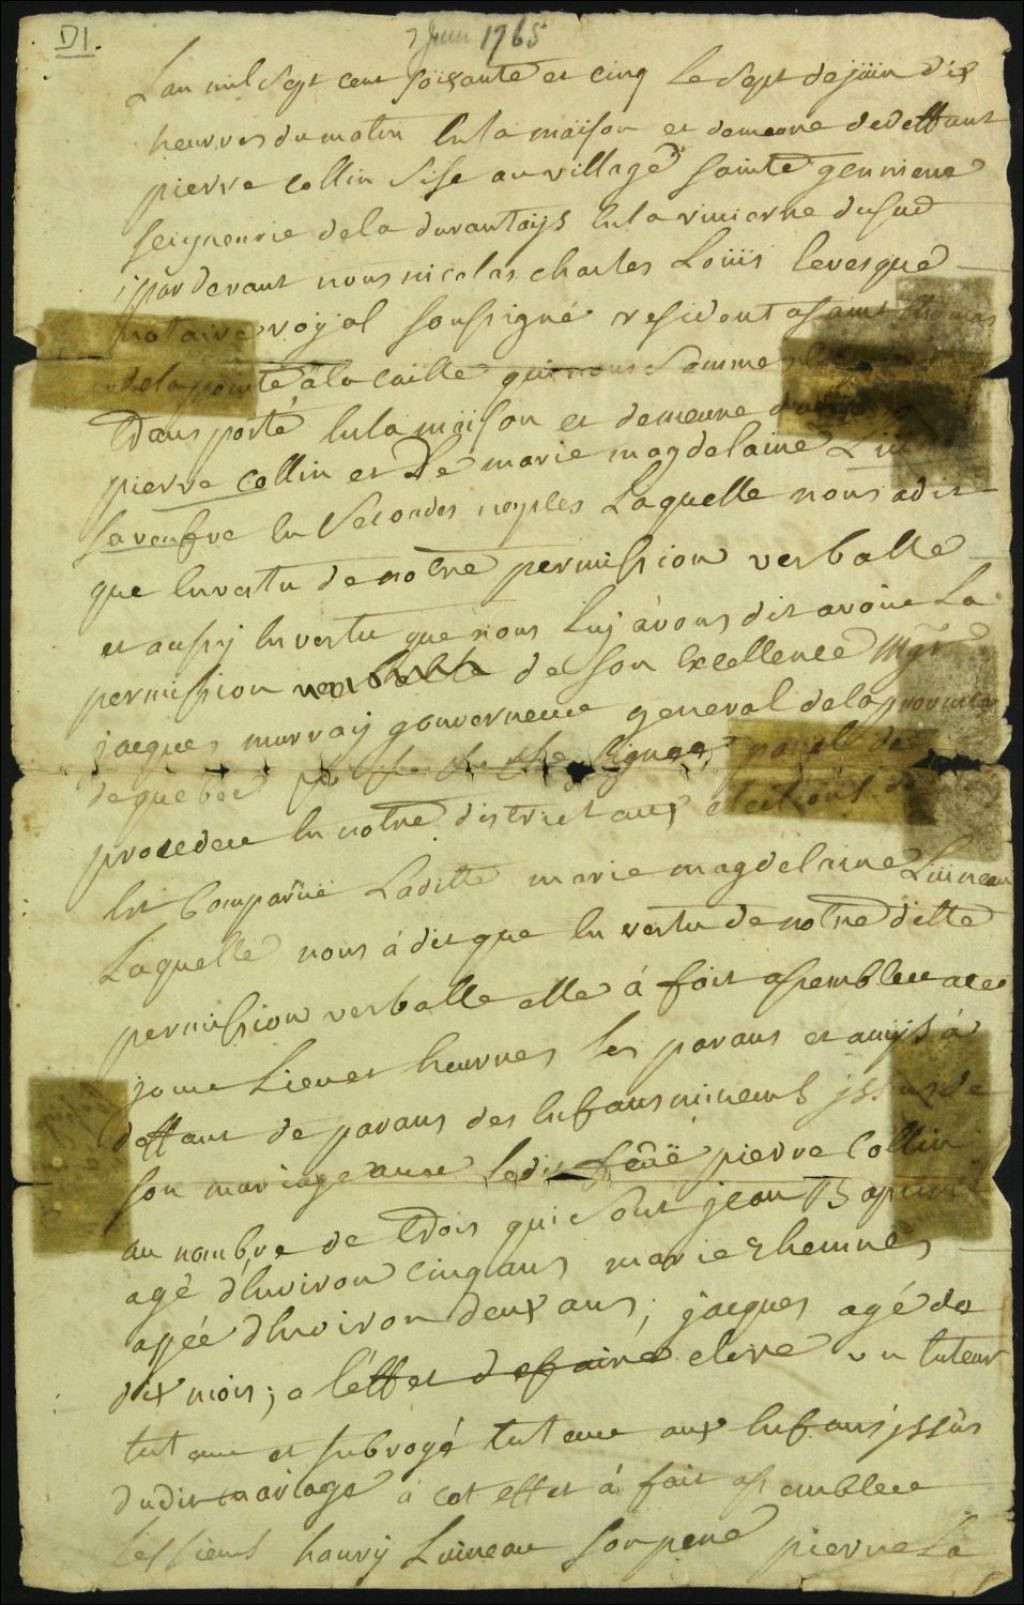 D1.
7 Juin 1765
Lan mil Sept cent soixante et cinq le sept de jüin dix
heurres du matin En la maison et demeure de deffunt
pierre collin Sise au village sainte genvieve
seigneurie de la durantays En la riviere du sud
par devant nous nicolas charles Loüis levesque
notaire royal soussigné residant a saint thomas
de la pointe à la caille qui nous Sommes
transporté En la maison et demeure
pierre collin et De marie magdelaine
sa veufve En Secondes nopses Laquelle nous a dit
que En vertu de notre permission verballe
et aussy En vertu que nous luy avons dit avoire La
permission verballe de son Excellence Mgr
jacques murray gouverneure general de la province
de quebec signée, pour de
procedere En notre district aux elections de
Est Comparüe Laditte marie magdelaine Luineau
Laquelle nous à dit que En vertu de notre ditte
permission verballe elle à fait assemblere a ces
joure Lieu et heurres les parans et amys à
deffaut de parans des Enfans mineurs issus de
son mariage avec ledit feüe pierre Collin
au nombre de trois qui sont jean Baptiste
agé d'Environ cinq ans marie
agée d'Environ deux ans; jacques agé de
dix mois; a l'effet de faire elire un tuteur
tuteure et subrogé tuteure aux Enfans issus
dudit mariage à cet effet à fait assemblere
les sieurs haury Luineau son pere pierre La